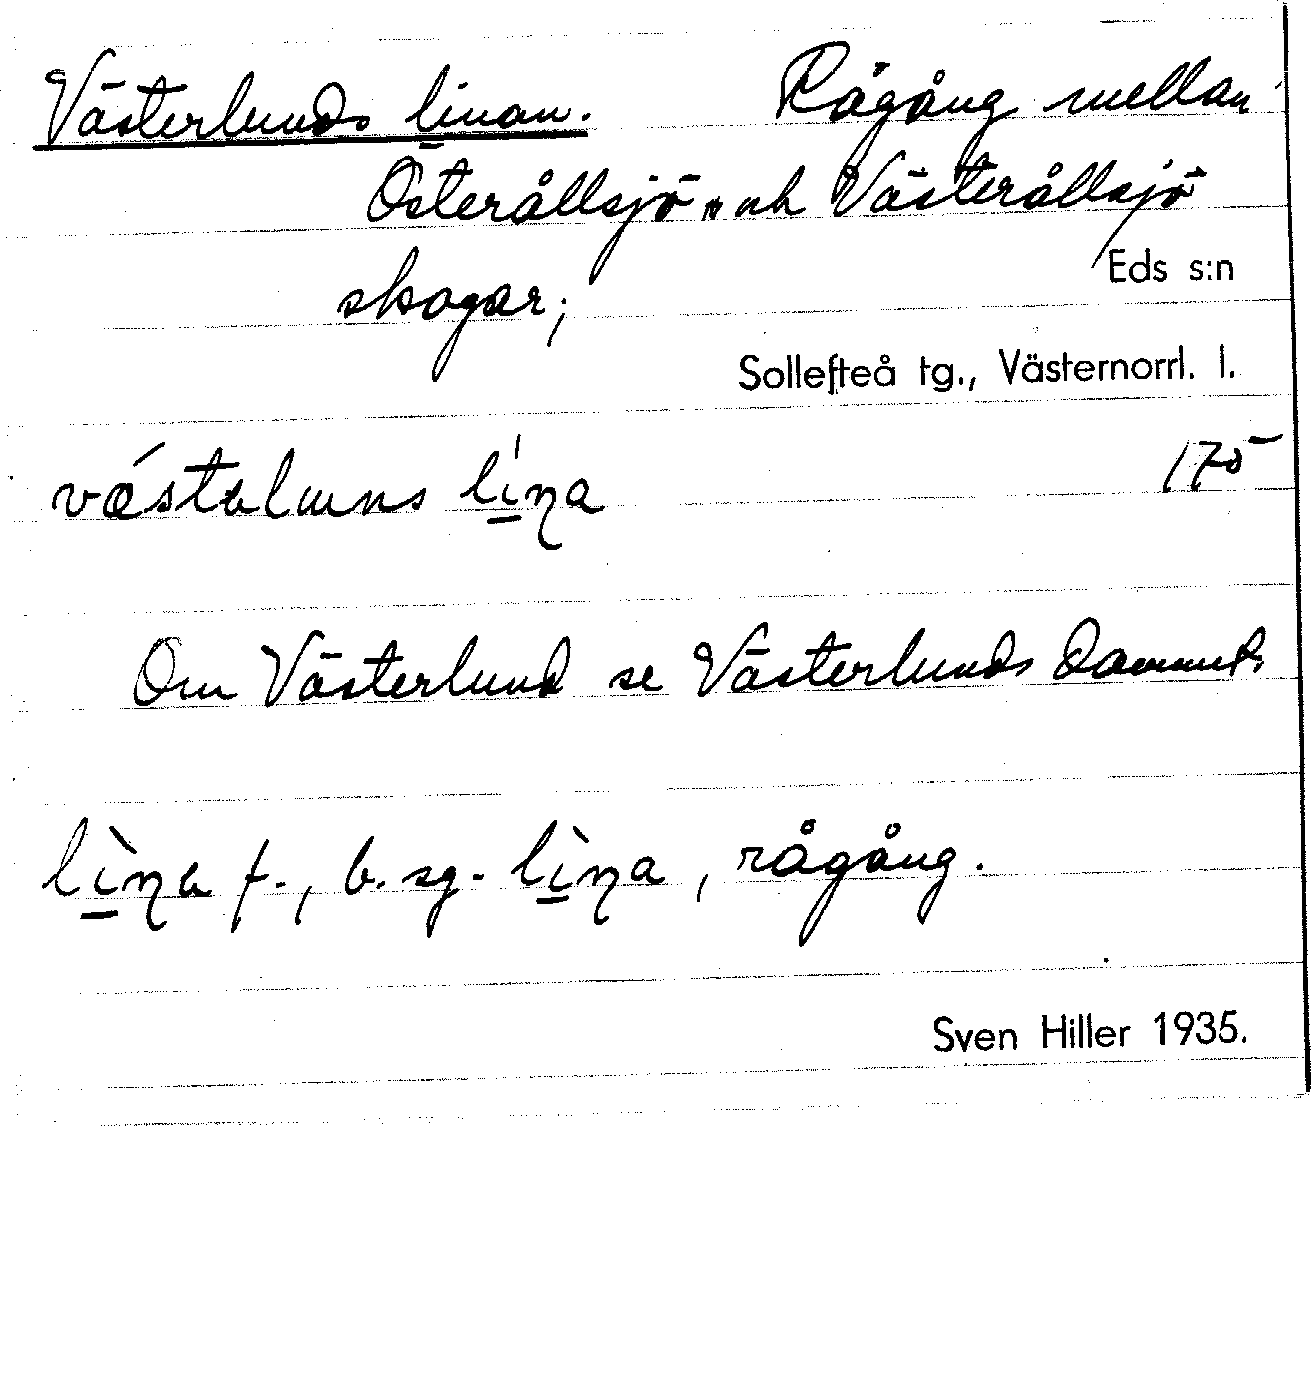 Västerlunds linan. Rågång mellan
Österållsjö och Västerållsjö
skogar; Eds s:n
Sollefteå tg., Västernorrl. l.
175
Om Västerlund se Västerlunds
f., b. sg. rågång.
Sven Hiller 1935.